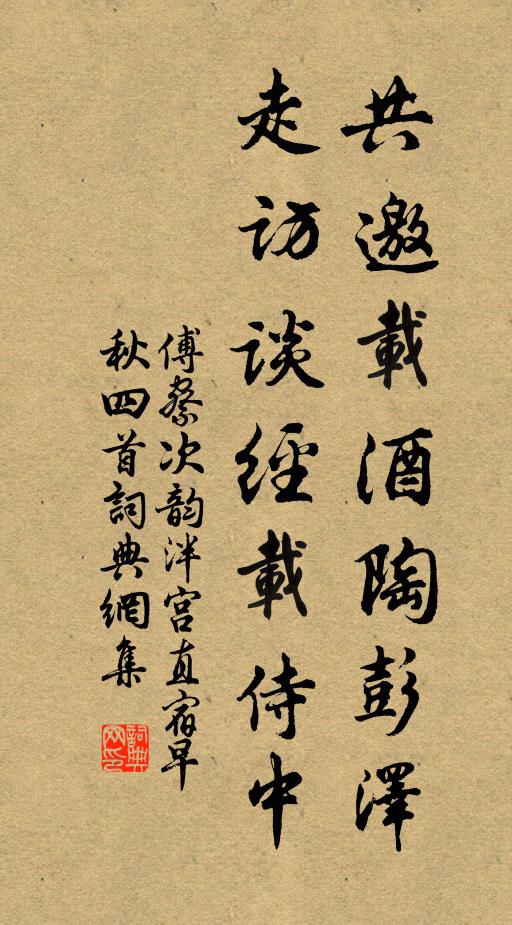 共邀載酒陶彭澤
走訪談經載侍中
傅察次韵泮宮直宿早
秋四首詞典網集
詞典
网印